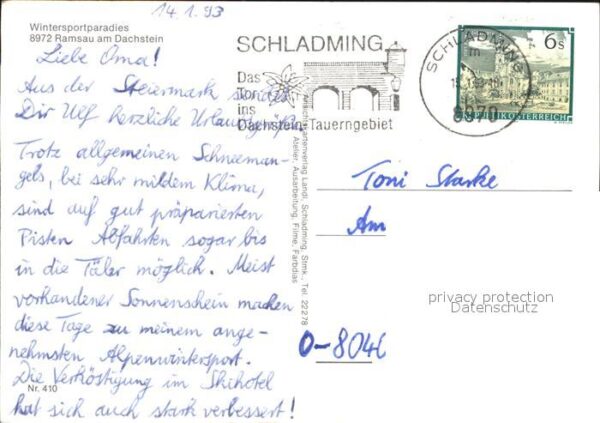 14.1.93
Wintersportparadies
8972 Ramsau am Dachstein
Liebe Oma!
Aus der Steiermark sendet
Dir Ulf herzliche Urlaubsgrüße.
Trotz allgemeinen Schneeman-
gels, bei sehr mildem Klima,
sind auf gut präparierten
Pisten Abfahrten sogar bis
in die Täler möglich. Meist
vorhandener Sonnenschein machen
diese Tage zu meinem ange-
nehmsten Alpenwintersport.
Die Verköstigung im Skihotel
hat sich auch stark verbessert!
Nr. 410
SCHLADMING
Das
Tor
ins
Dachstein-Tauerngebiet
SCHLADMING
8970
6 S
REPUBLIK ÖSTERREICH
Ansichtskartenverlag Landl, Schladming, Stmk., Tel. 22278
Atelier, Ausarbeitung, Filme, Farbdias
Toni Starke
Am
privacy protection
Datenschutz